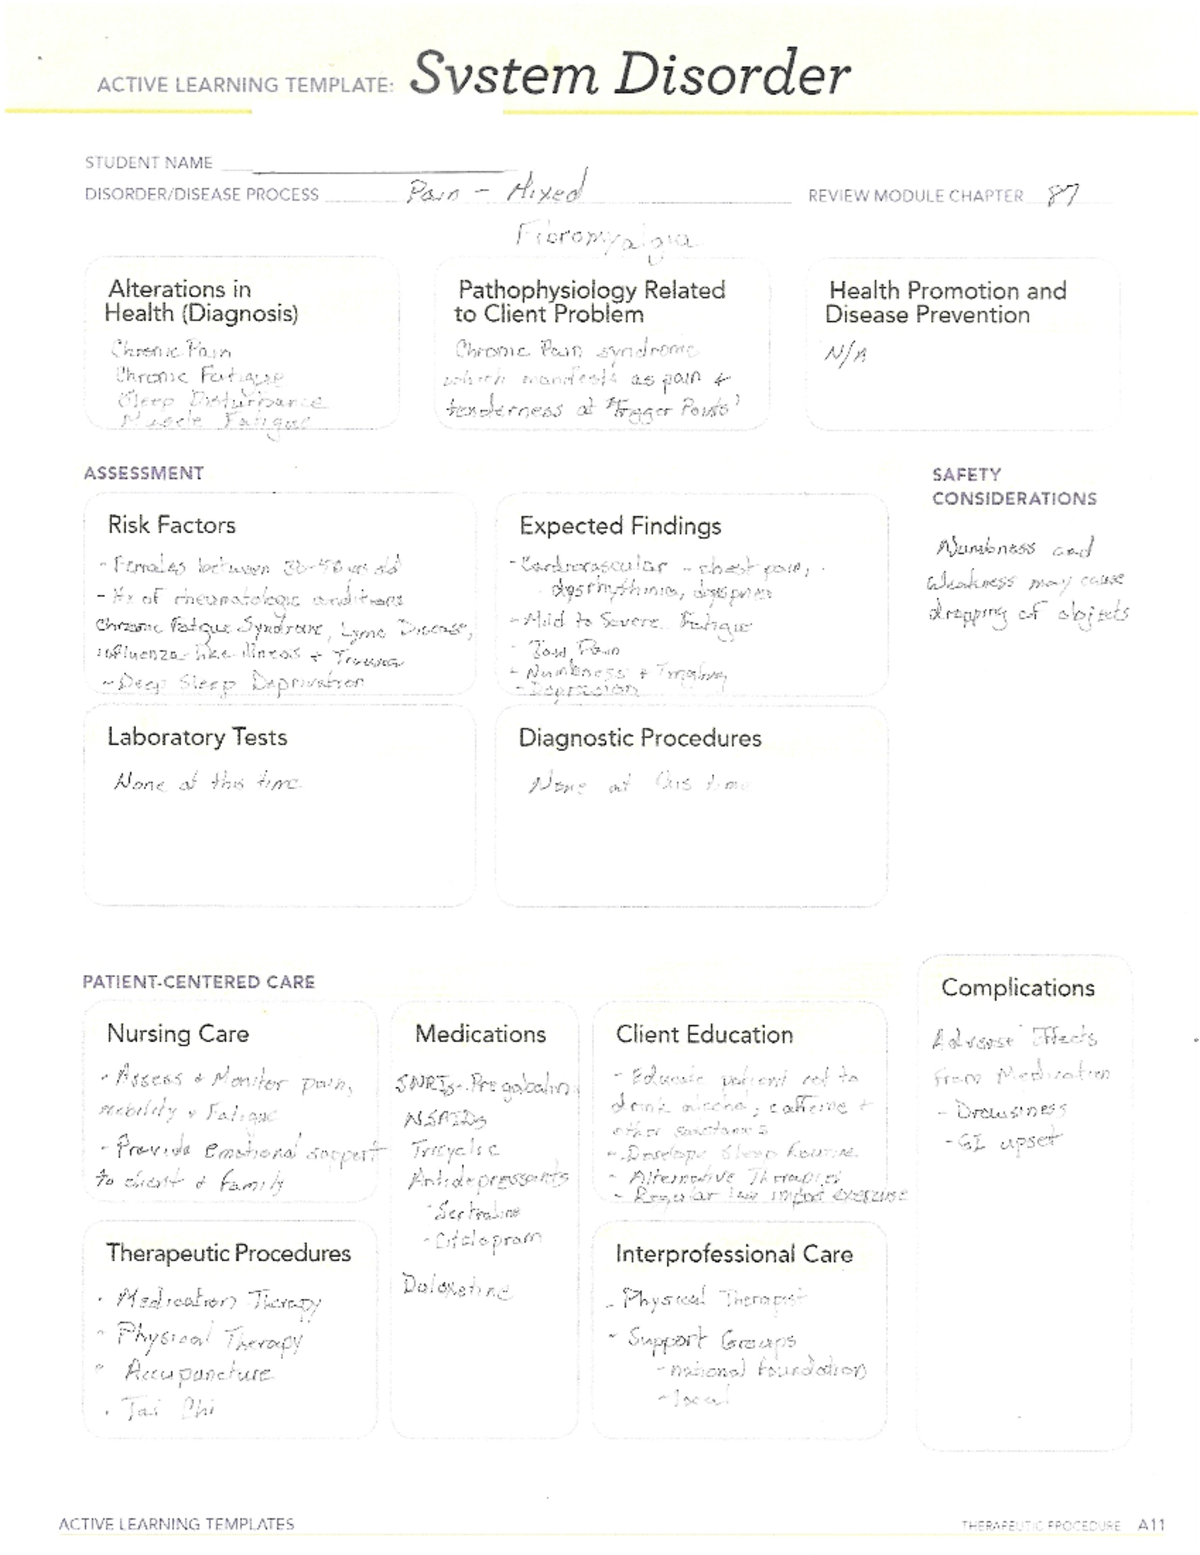 ACTIVE LEARNING TEMPLATE: System Disorder
STUDENT NAME
DISORDER/DISEASE PROCESS Pain - Mixed
REVIEW MODULE CHAPTER 87
Fibromyalgia
Alterations in
Health (Diagnosis)
Chronic Pain
Chronic Fatigue
Sleep Disturbance
Muscle Fatigue
Pathophysiology Related
to Client Problem
Chronic Pain syndrome
which manifests as pain +
tenderness at "Trigger Points"
Health Promotion and
Disease Prevention
N/A
ASSESSMENT
SAFETY
CONSIDERATIONS
Numbness and
weakness may cause
dropping of objects
Risk Factors
- Females between 30-50 yrs old
- Hx of rheumatologic conditions
Chronic Fatgue Syndrome, Lyme Disease,
influenza-like illness + Trauma
- Deep Sleep Deprivation
Expected Findings
- Cardiovascular - chest pain,
dysrhythmia, dyspnea
- Mild to Severe Fatigue
- Jaw Pain
- Numbness + Tingling
- Depression
Laboratory Tests
None at this time
Diagnostic Procedures
None at this time
PATIENT-CENTERED CARE
Nursing Care
- Assess + Monitor pain,
mobility + Fatigue
- Provide emotional support
to client + family
Medications
SNRIs - Pregabalin
NSAIDs
Tricyclic
Antidepressants
- Sertraline
- Citalopram
Duloxetine
Client Education
- Educate patient not to
drink alcohol, caffeine +
other substances
- Develope Sleep Routine
- Alternative Therapies
- Regular low impact exercise
Complications
Adverse Effects
From Medication
- Drowsiness
- GI upset
Therapeutic Procedures
· Medication Therapy
- Physical Therapy
· Accupuncture
· Tai Chi
Interprofessional Care
- Physical Therapist
- Support Groups
- national foundation
- local
ACTIVE LEARNING TEMPLATES
THERAPEUTIC PROCEDURE A11